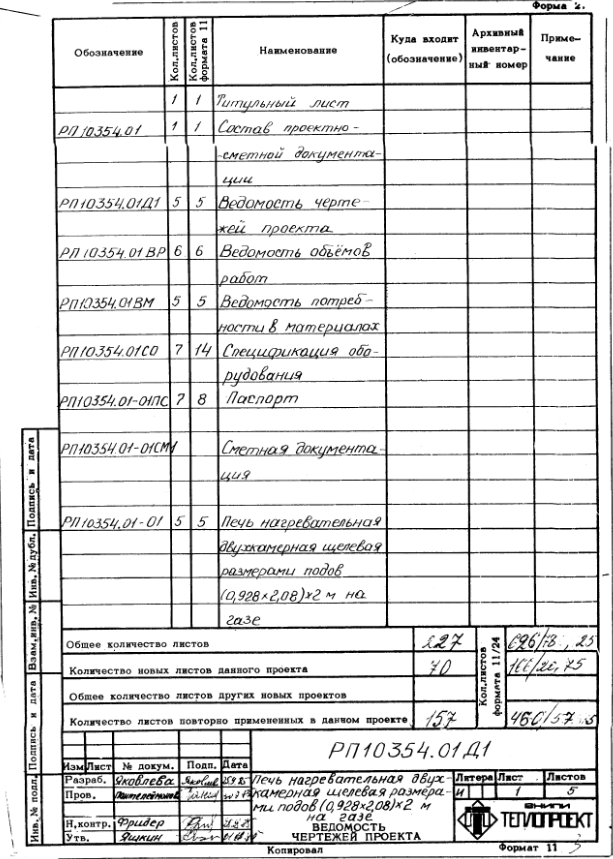 Форма 2.
Обозначение Кол.листов Кол.листов формата 11 Наименование Куда входит (обозначение) Архивный инвентарный номер Примечание
1 1 Титульный лист
РП10354.01 1 1 Состав проектно-
-сметной документа-
ции
РП10354.01Д1 5 5 Ведомость черте-
жей проекта
РП10354.01ВР 6 6 Ведомость объёмов
работ
РП10354.01ВМ 5 5 Ведомость потреб-
ности в материалах
РП10354.01СО 7 14 Спецификация обо-
рудования
РП10354.01-01ПС 7 8 Паспорт
РП10354.01-01СМ1 Сметная документа-
ция
РП10354.01-01 5 5 Печь нагревательная
двухкамерная щелевая
размерами подов
(0,928×2,08)×2 м на
газе
Общее количество листов 227
Кол.листов формата 11/24
Количество новых листов данного проекта 70
Общее количество листов других новых проектов
Количество листов повторно примененных в данном проекте 157
РП10354.01Д1
Изм Лист № докум. Подп. Дата
Разраб. Яковлева
Пров.
Н.контр. Фридер
Утв. Яшкин
Печь нагревательная двух-
камерная щелевая размера-
ми подов (0,928×2,08)×2 м
на газе
ВЕДОМОСТЬ
ЧЕРТЕЖЕЙ ПРОЕКТА
Литера Лист Листов
И 1 5
ВНИПИ
ТЕПЛОПРОЕКТ
Копировал Формат 11 3
Инв.№ подл. Подпись и дата Взам.инв.№ Инв.№ дубл. Подпись и дата